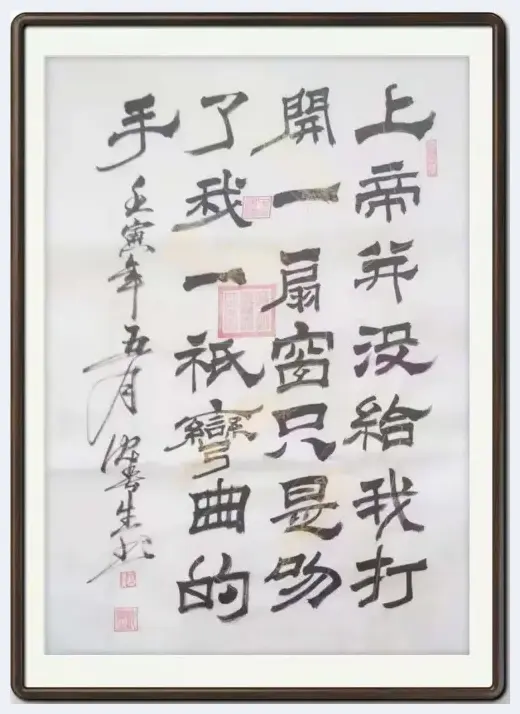 上帝并没給我打
開一扇窗只是吻
了我一祇彎曲的
手
壬寅年五月 春生书